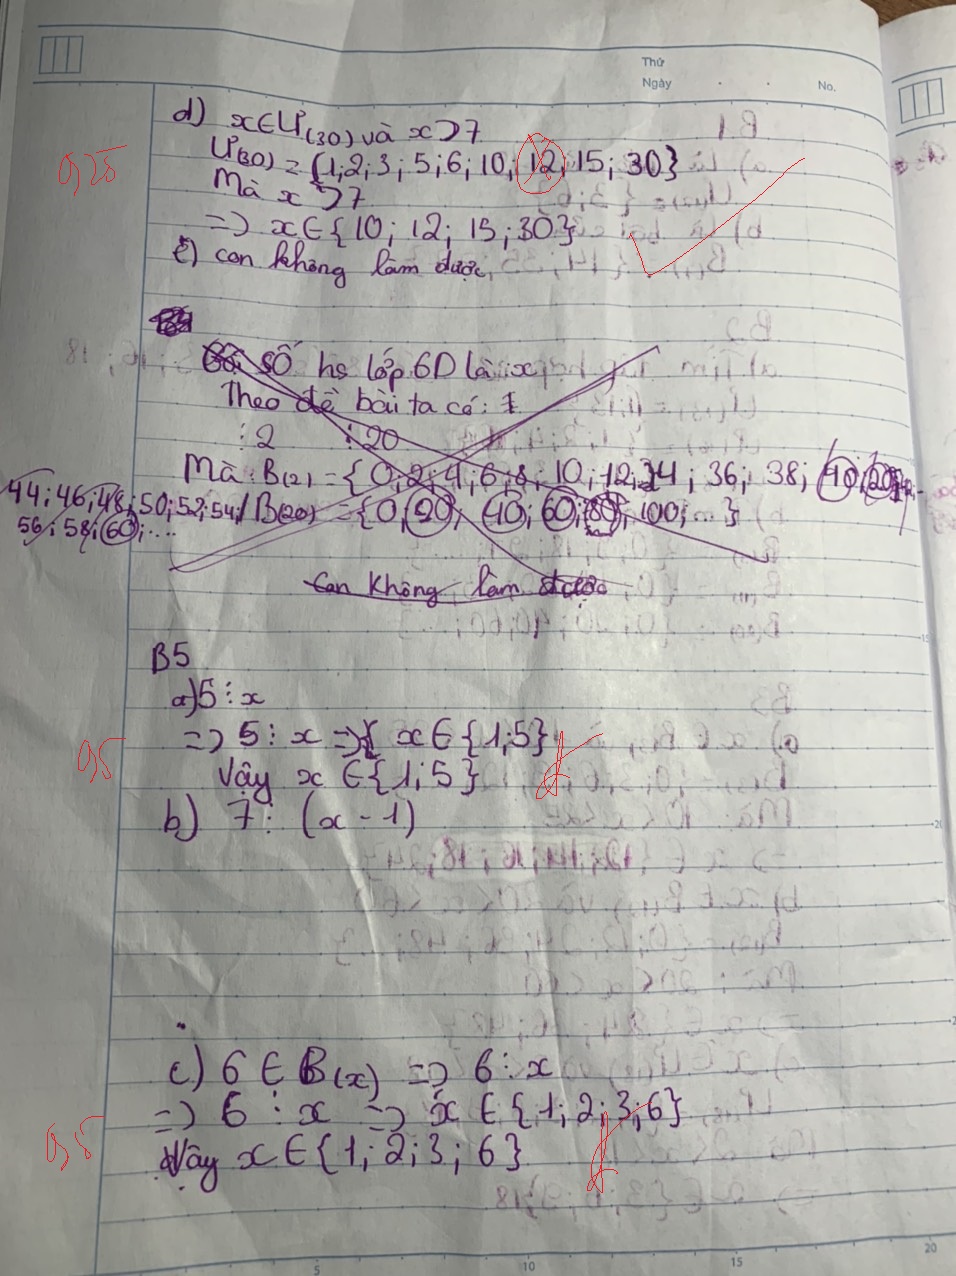 Thứ
Ngày . . No.
d) x ∈ Ư(30) và x > 7
0,25
Ư(30) = {1; 2; 3; 5; 6; 10; 12; 15; 30}
Mà x > 7
=> x ∈ {10; 12; 15; 30}
e) con không làm được
Số hs lớp 6D là x
Theo đề bài ta có: 1
⋮ 2 ⋮ 20
Mà B(2) = {0; 2; 4; 6; 8; 10; 12; 34; 36; 38; 40;
44; 46; 48; 50; 52; 54; / B(20) = {0; 20; 40; 60; 80; 100; ...}
56; 58; 60; ....
Con không làm được
B5
a) 5 ⋮ x
=> 5 ⋮ x => { x ∈ {1; 5}
0,5
Vậy x ∈ {1; 5}
b) 7 ⋮ (x - 1)
c) 6 ∈ B(x) => 6 ⋮ x
=> 6 ⋮ x => x ∈ {1; 2; 3; 6}
0,5
Vậy x ∈ {1; 2; 3; 6}
5 10 15 20